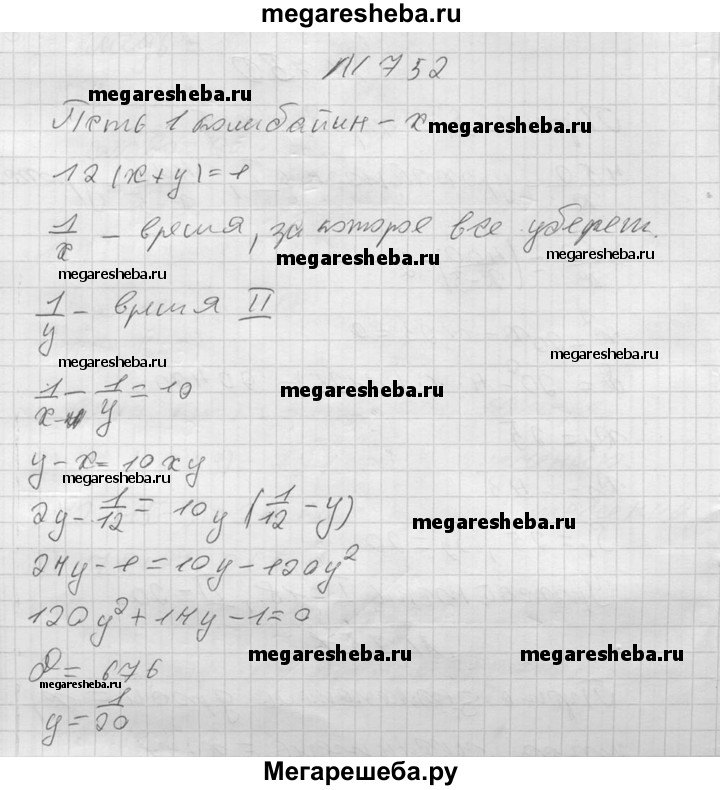 megaresheba.ru
N 752
megaresheba.ru
Псть 1 комбайин - x
megaresheba.ru
12 (x + y) = 1
1/x - время, за которое все уберет.
megaresheba.ru
megaresheba.ru
megaresheba.ru
1/y - время II
megaresheba.ru
megaresheba.ru
1/x - 1/y = 10
megaresheba.ru
y - x = 10xy
megaresheba.ru
2y - 1/12 = 10y (1/12 - y)
megaresheba.ru
24y - 1 = 10y - 120y²
120y² + 14y - 1 = 0
megaresheba.ru
megaresheba.ru
D = 676
megaresheba.ru
y = 1/20
Мегарешеба.ру